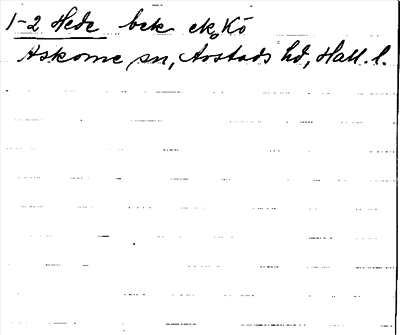 1-2 Hede bek ek, Kö
Askome sn, Årstads hd, Hall. l.